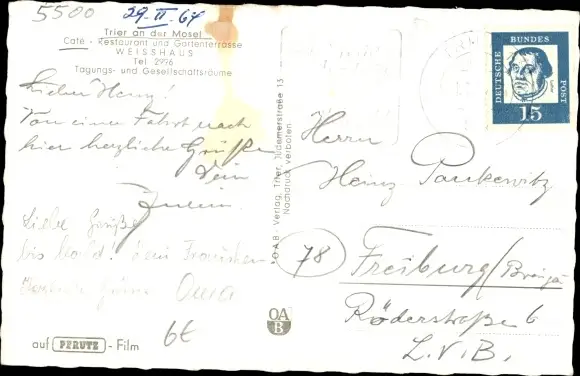 5500
29-II-67
Trier an der Mosel
Café - Restaurant und Gartenterrasse
WEISSHAUS
Tel 2976
Tagungs- und Gesellschaftsräume
Lieber Heinz!
Von einer Fahrt nach
hier herzliche Grüße
Dein
Liebe Grüße
bis bald! Dein
Oma
auf PERUTZ - Film
6€
O A B - Verlag, Trier, Südallerstraße 15
Nachdruck verboten
OA
B
DEUTSCHE
BUNDES
POST
15
Herrn
Heinz Paukewitz
78
Freiburg/Breisg.
Röderstraße 6
L.V.B.